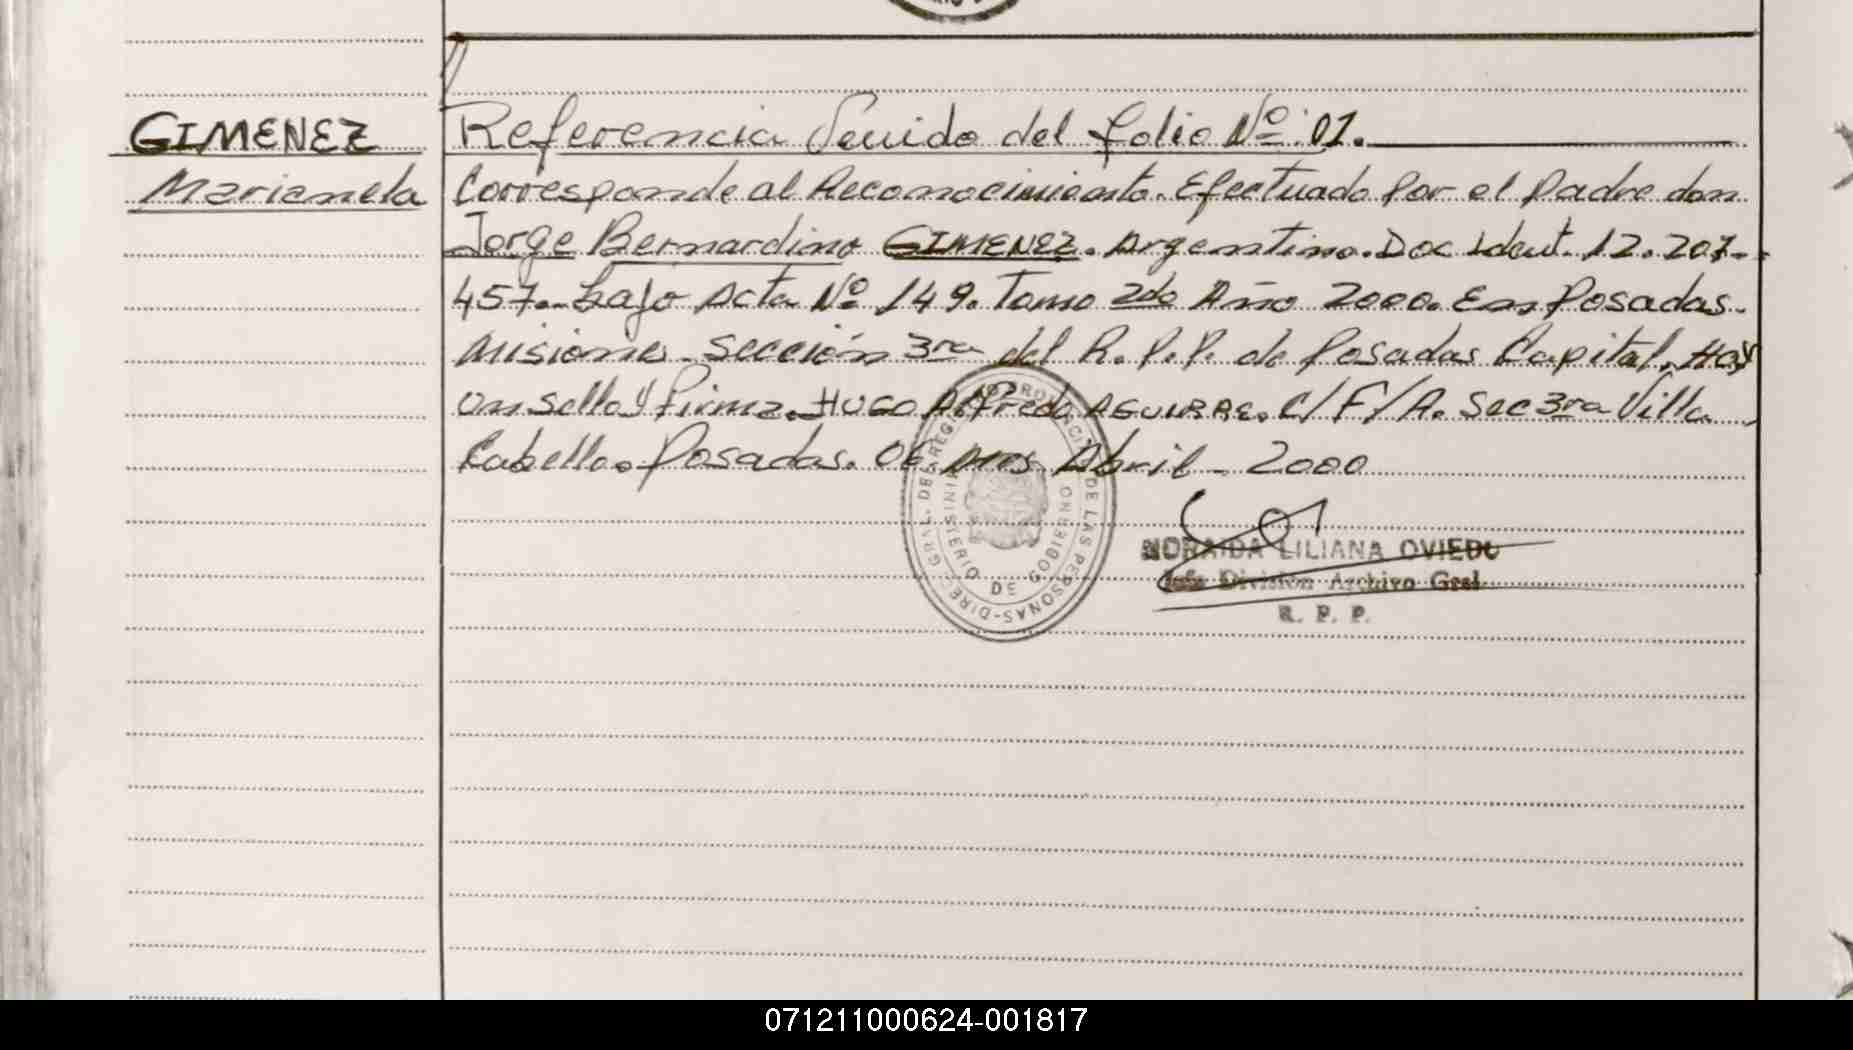 GIMENEZ
Marianela
Referencia Venido del folio Nº: 01.
Corresponde al Reconocimiento. Efectuado Por el Padre don
Jorge Bernardino GIMENEZ. Argentino. Doc Ident. 12.207-
457. bajo Acta Nº 149. Tomo 2do Año 2000. En Posadas.
Misiones. Sección 3ra del R.P.P. de Posadas Capital, Hay
un sello y Firma. HUGO Alfredo AGUIRRE. C/F/A. Sec 3ra Villa
Cabello. Posadas. 06 Abril - 2000
DIREC. GRAL. DEL REGISTRO PROVINCIAL DE LAS PERSONAS
MINISTERIO DE GOBIERNO
NORAIDA LILIANA OVIEDO
Jefe División Archivo Gral
R. P. P.
071211000624-001817